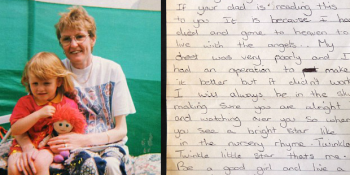 If your dad is reading this
to you It is because I have
died and gone to heaven to
live with the angels. My
chest was very poorly and I
had an operation to make
it better but it didn't work
I will always be in the sky
making sure you are alright
and watching over you. So when
you see a bright star like
in the nursery rhyme. Twinkle
Twinkle little star thats me.
Be a good girl and live a